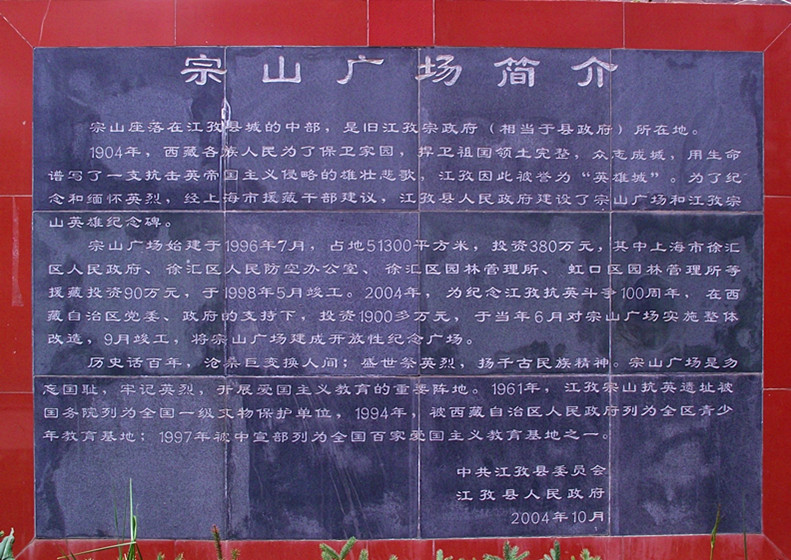 宗山广场简介
宗山座落在江孜县城的中部，是旧江孜宗政府（相当于县政府）所在地。
1904年，西藏各族人民为了保卫家园，捍卫祖国领土完整，众志成城，用生命
谱写了一支抗击英帝国主义侵略的雄壮悲歌，江孜因此被誉为“英雄城”。为了纪
念和缅怀英烈，经上海市援藏干部建议，江孜县人民政府建设了宗山广场和江孜宗
山英雄纪念碑。
宗山广场始建于1996年7月，占地51300平方米，投资380万元，其中上海市徐汇
区人民政府、徐汇区人民防空办公室、徐汇区园林管理所、虹口区园林管理所等
援藏投资90万元，于1998年5月竣工。2004年，为纪念江孜抗英斗争100周年，在西
藏自治区党委、政府的支持下，投资1900多万元，于当年6月对宗山广场实施整体
改造，9月竣工，将宗山广场建成开放性纪念广场。
历史话百年，沧桑巨变换人间；盛世祭英烈，扬千古民族精神。宗山广场是勿
忘国耻，牢记英烈，开展爱国主义教育的重要阵地。1961年，江孜宗山抗英遗址被
国务院列为全国一级文物保护单位，1994年，被西藏自治区人民政府列为全区青少
年教育基地；1997年被中宣部列为全国百家爱国主义教育基地之一。
中共江孜县委员会
江孜县人民政府
2004年10月